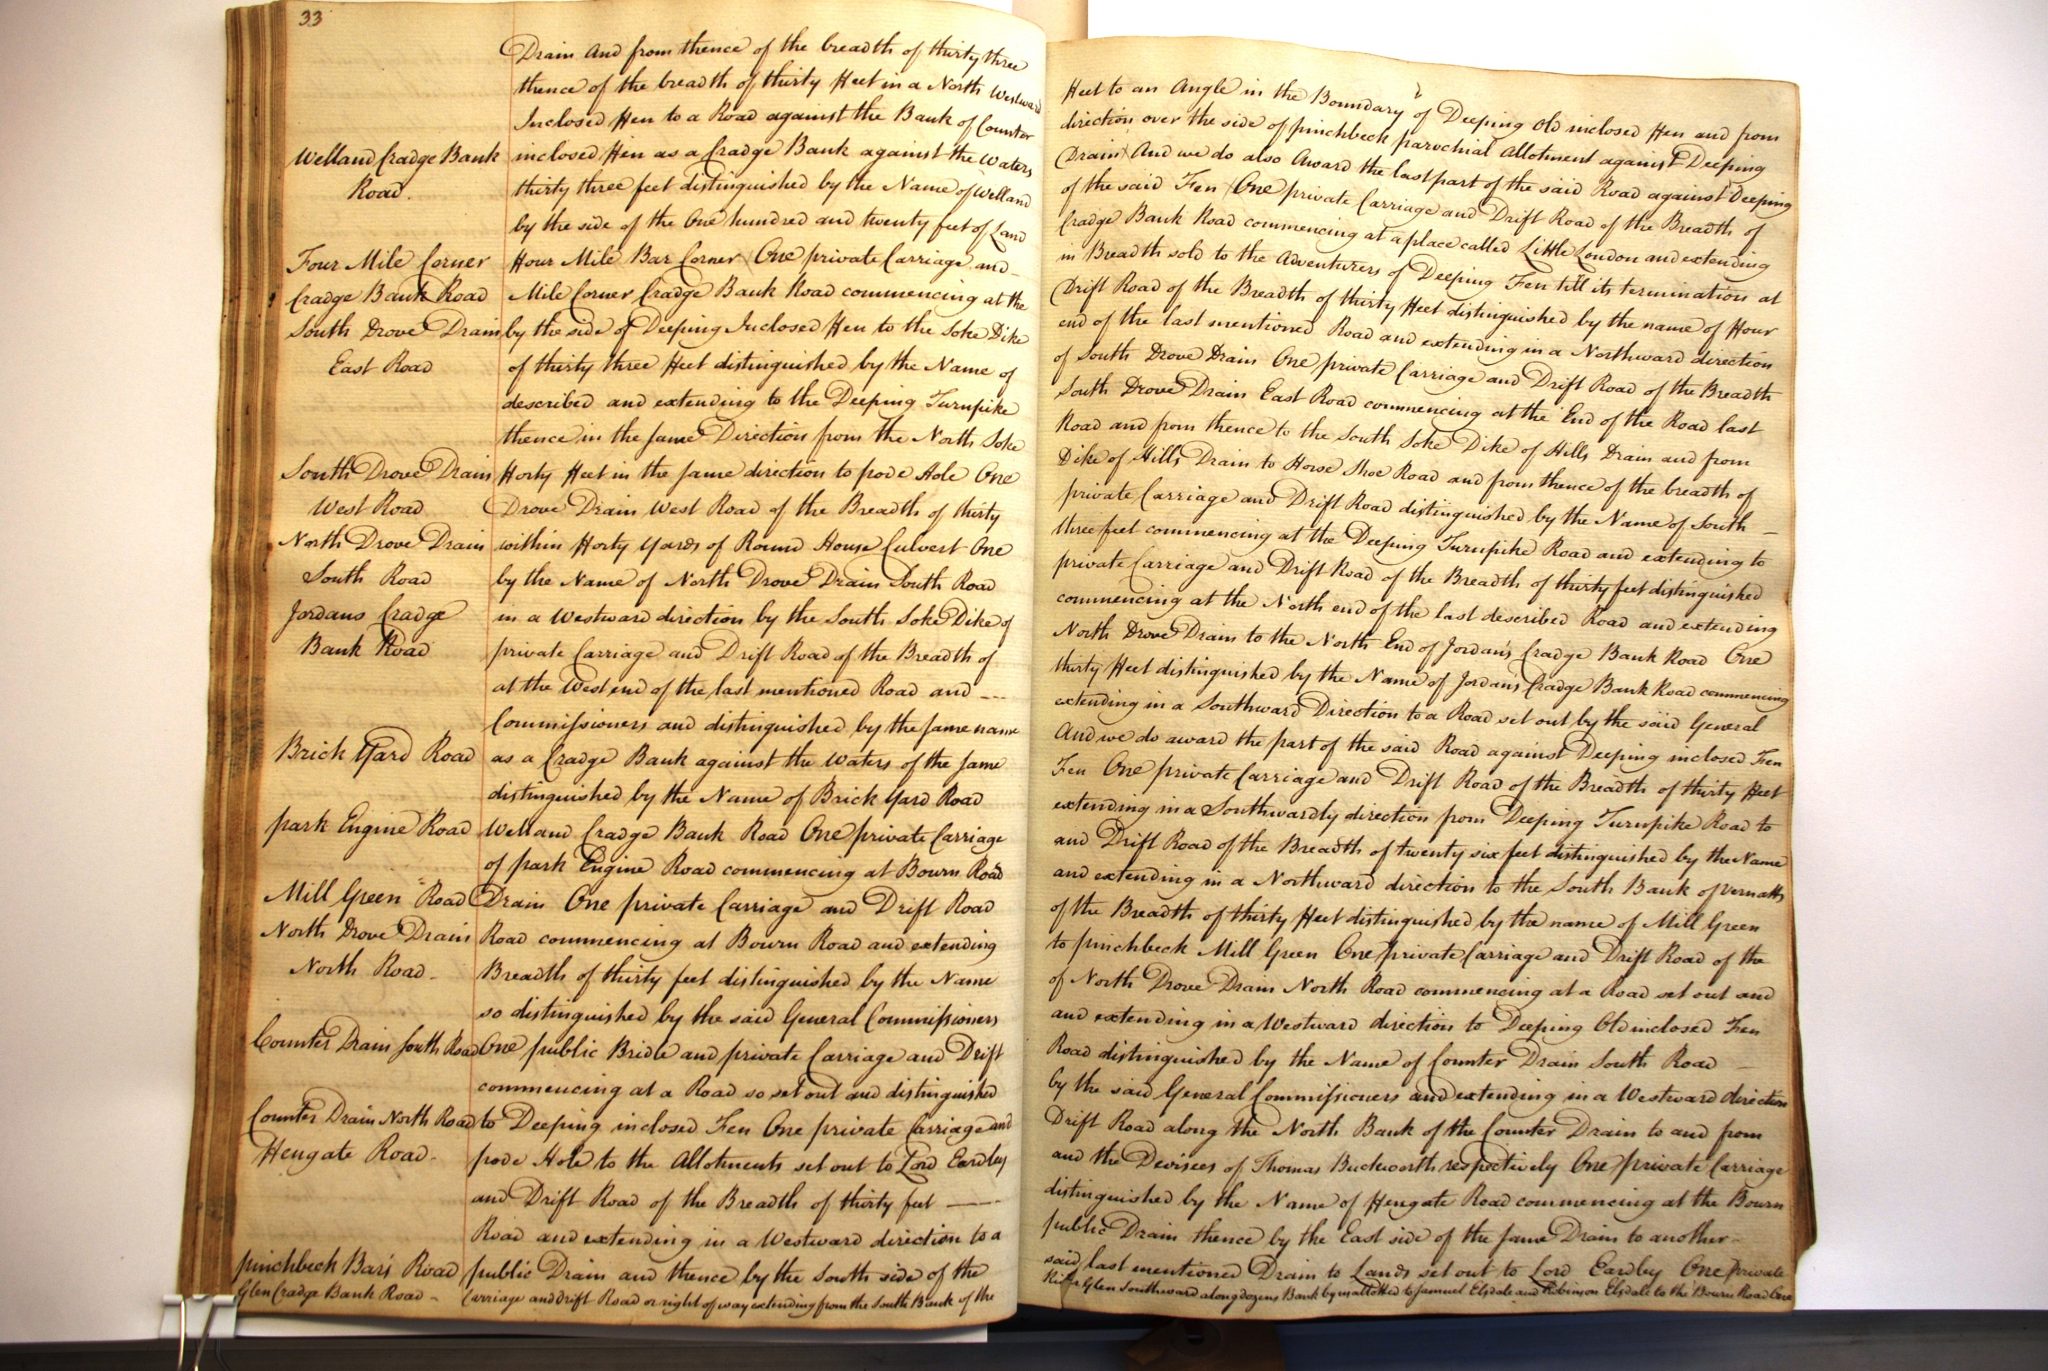 33
Drain And from thence of the breadth of thirty three Feet to an Angle in the Boundary of Deeping Old inclosed Fen and from
thence of the breadth of thirty Feet in a North Westward direction over the side of pinchbeck parochial Allotment against Deeping
Inclosed Fen to a Road against the Bank of Counter Drain And we do also Award the last part of the said Road against Deeping
Welland Cradge Bank inclosed Fen as a Cradge Bank against the Waters of the said Fen One private Carriage and Drift Road of the Breadth of
Road. thirty three feet distinguished by the Name of Welland Cradge Bank Road commencing at a place called Little London and extending
by the side of the One hundred and twenty feet of Land in Breadth sold to the Adventurers of Deeping Fen till its termination at
Four Mile Corner Four Mile Bar Corner One private Carriage and Drift Road of the Breadth of thirty Feet distinguished by the name of Four
Cradge Bank Road Mile Corner Cradge Bank Road commencing at the end of the last mentioned Road and extending in a Northward direction
South Drove Drain by the side of Deeping Inclosed Fen to the Soke Dike of South Drove Drain One private Carriage and Drift Road of the Breadth
East Road of thirty three Feet distinguished by the Name of South Drove Drain East Road commencing at the End of the Road last
described and extending to the Deeping Turnpike Road and from thence to the South Soke Dike of Hills Drain and from
thence in the same Direction from the North Soke Dike of Hills Drain to Horse Shoe Road and from thence of the breadth of
South Drove Drain Forty Feet in the same direction to pode Hole One private Carriage and Drift Road distinguished by the Name of South
West Road Drove Drain West Road of the Breadth of thirty three feet commencing at the Deeping Turnpike Road and extending to
North Drove Drain within Forty Yards of Round House Culvert One private Carriage and Drift Road of the Breadth of thirty feet distinguished
South Road by the Name of North Drove Drain South Road commencing at the North end of the last described Road and extending
Jordans Cradge in a Westward direction by the South Soke Dike of North Drove Drain to the North End of Jordan's Cradge Bank Road One
Bank Road private Carriage and Drift Road of the Breadth of thirty Feet distinguished by the Name of Jordans Cradge Bank Road commencing
at the West end of the last mentioned Road and extending in a Southward Direction to a Road set out by the said General
Commissioners and distinguished by the same name And we do award the part of the said Road against Deeping inclosed Fen
Brick Yard Road as a Cradge Bank against the Waters of the same Fen One private Carriage and Drift Road of the Breadth of thirty Feet
distinguished by the Name of Brick Yard Road extending in a Southwardly direction from Deeping Turnpike Road to
park Engine Road Welland Cradge Bank Road One private Carriage and Drift Road of the Breadth of twenty six feet distinguished by the Name
of park Engine Road commencing at Bourn Road and extending in a Northward direction to the South Bank of Vernatts
Mill Green Road Drain One private Carriage and Drift Road of the Breadth of thirty Feet distinguished by the name of Mill Green
North Drove Drain Road commencing at Bourn Road and extending to pinchbeck Mill Green One private Carriage and Drift Road of the
North Road - Breadth of thirty feet distinguished by the Name of North Drove Drain North Road commencing at a Road set out and
so distinguished by the said General Commissioners and extending in a Westward direction to Deeping Old inclosed Fen
Counter Drain South Road One public Bridle and private Carriage and Drift Road distinguished by the Name of Counter Drain South Road
commencing at a Road so set out and distinguished by the said General Commissioners and extending in a Westward direction
Counter Drain North Road to Deeping inclosed Fen One private Carriage and Drift Road along the North Bank of the Counter Drain to and from
Hengate Road - pode Hole to the Allotments set out to Lord Eardley and the Devisees of Thomas Buckworth respectively One private Carriage
and Drift Road of the Breadth of thirty feet distinguished by the Name of Hengate Road commencing at the Bourn
Road and extending in a Westward direction to a public Drain thence by the East side of the same Drain to another
pinchbeck Bars Road public Drain and thence by the South side of the said last mentioned Drain to Lands set out to Lord Eardley One private
Glen Cradge Bank Road - Carriage and Drift Road or right of way extending from the South Bank of the River Glen Southward along dozens Bank by matt Otted to Samuel Elsdale and Robinson Elsdale to the Bourn Road One